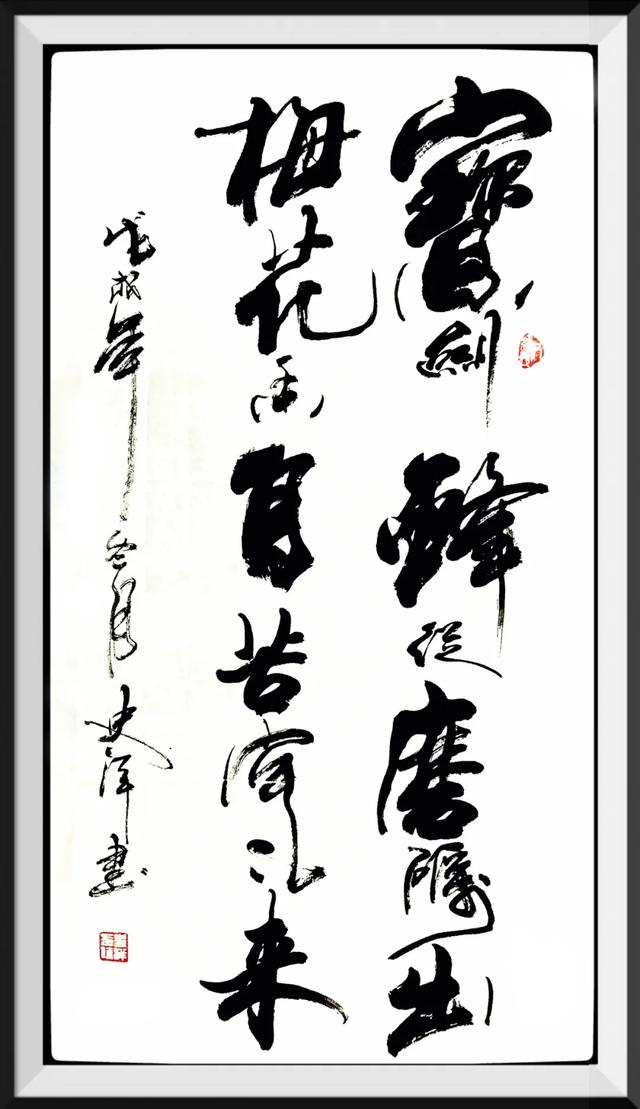 寶劍鋒從磨礪出
梅花香自苦寒来
戊戌年冬月史書